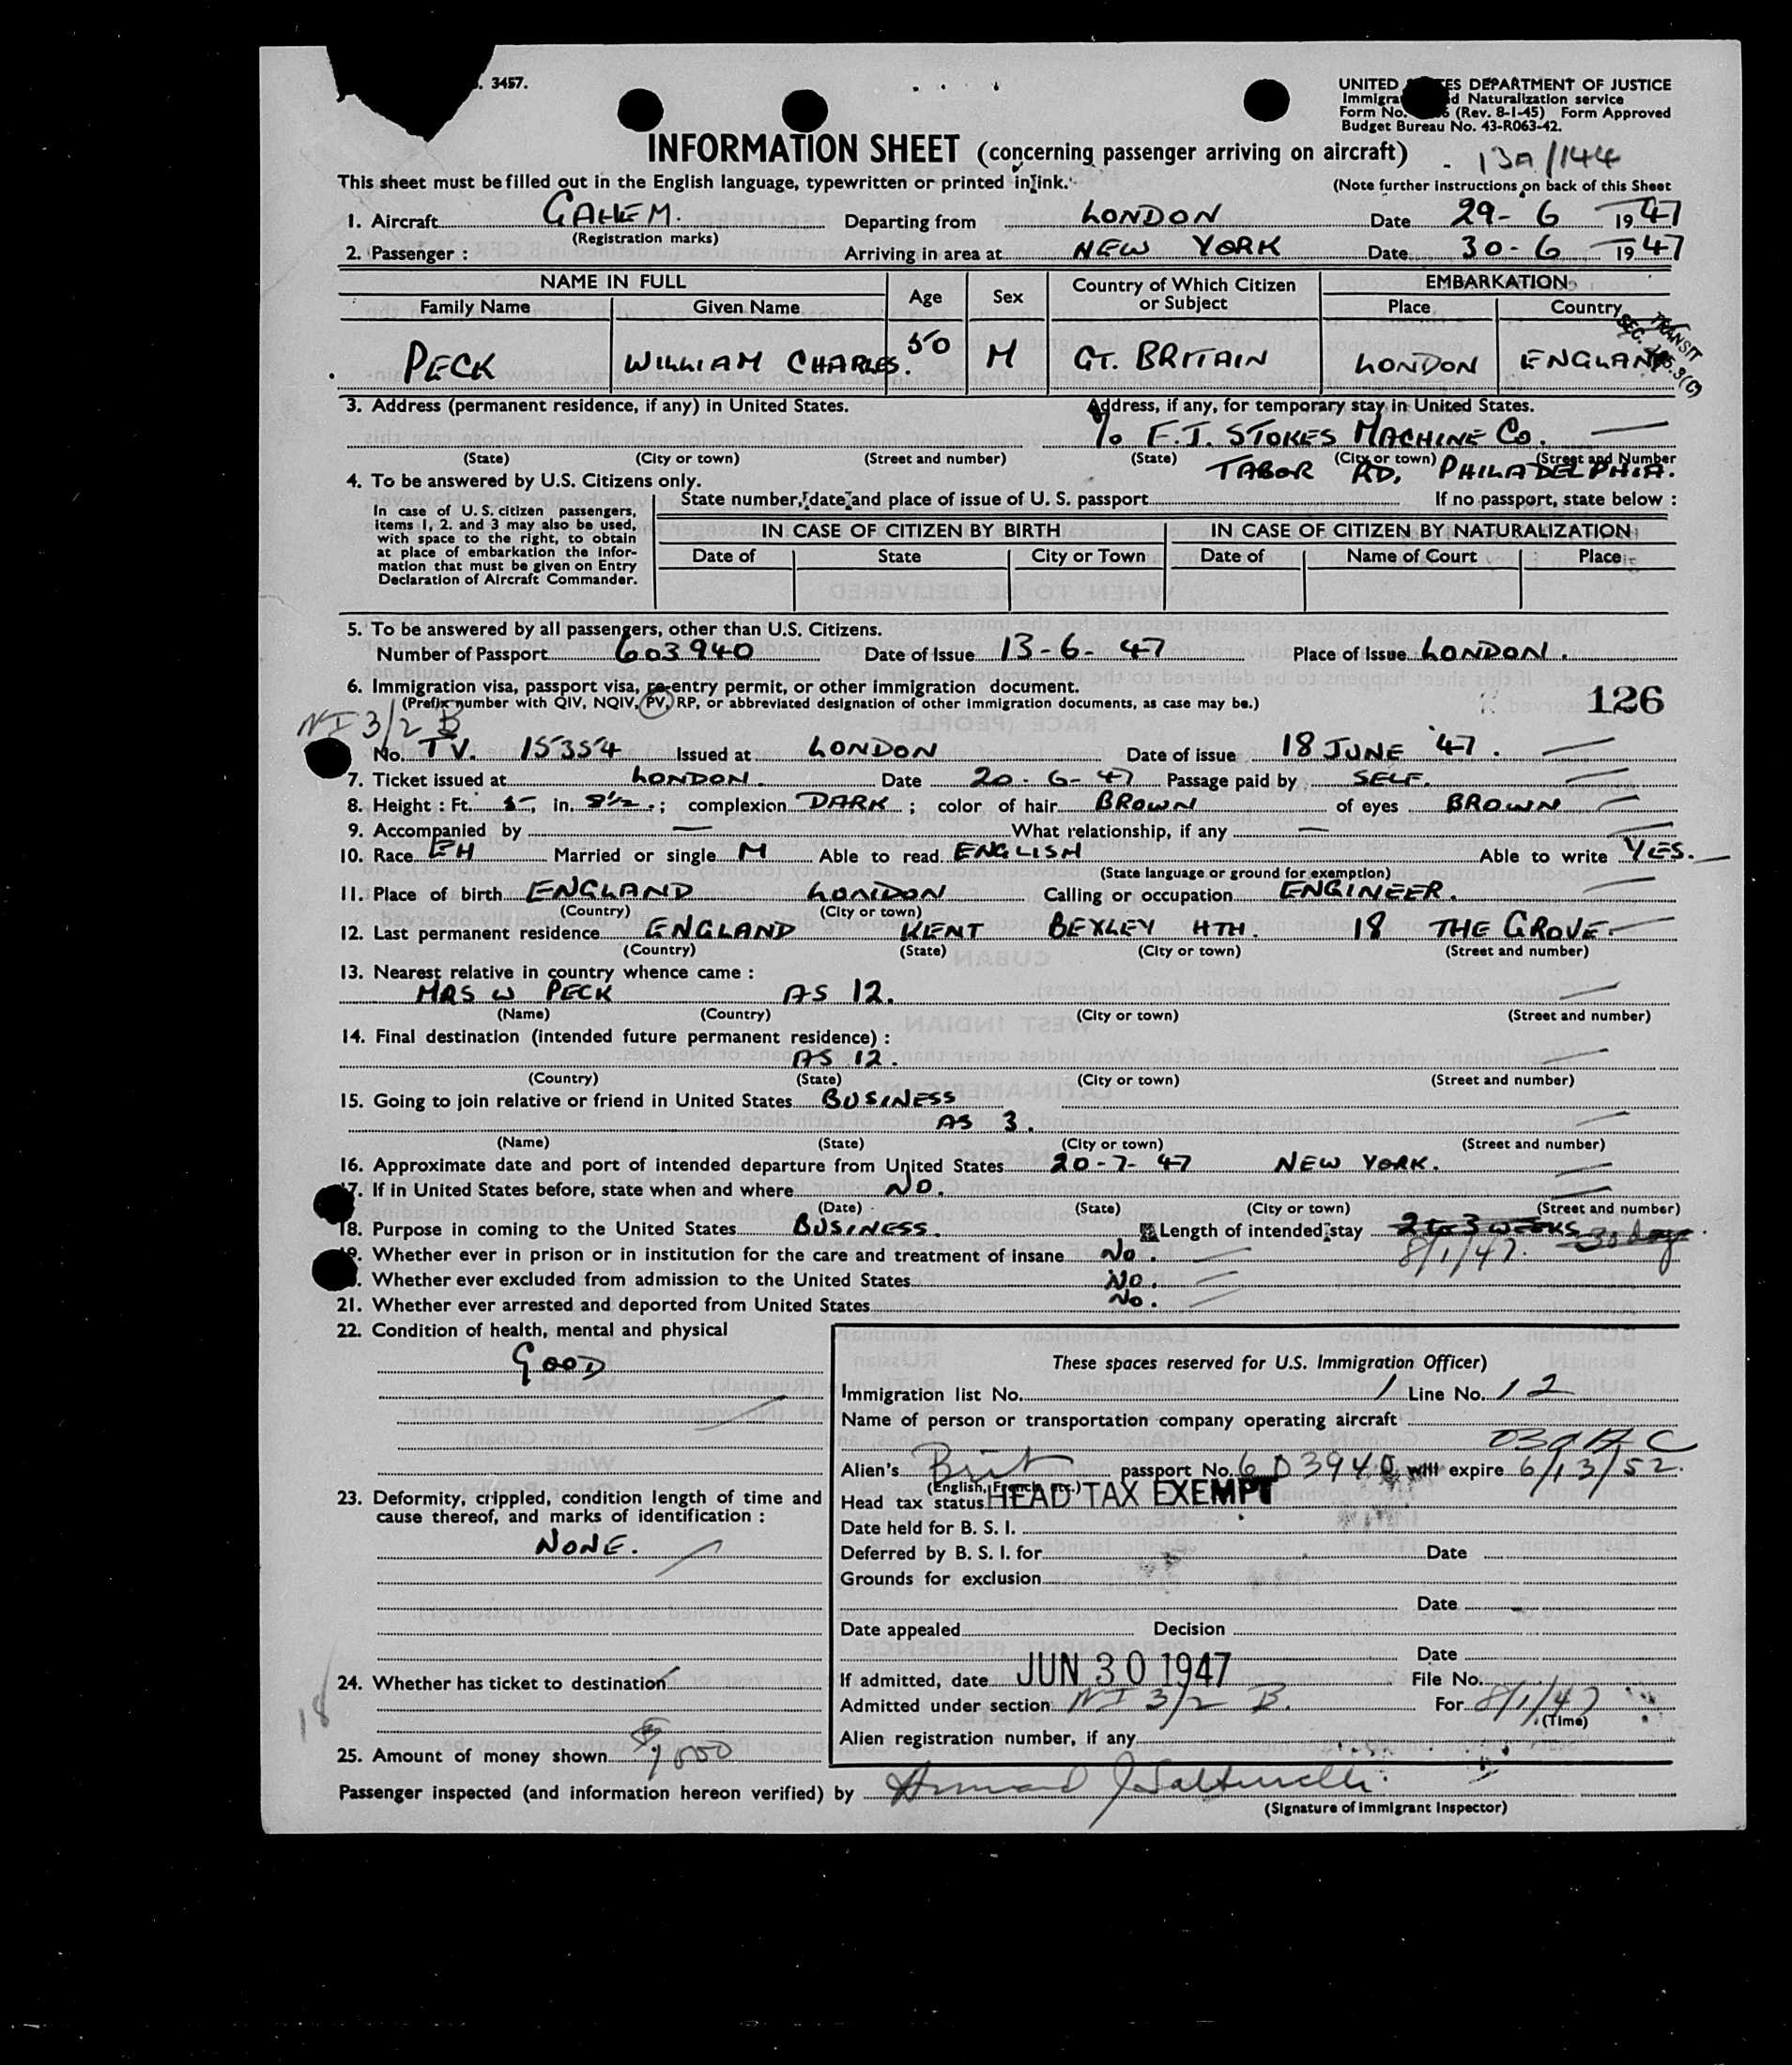 . 3457.
UNITED ES DEPARTMENT OF JUSTICE
Immigra d Naturalization service
Form No. 6 (Rev. 8-1-45) Form Approved
Budget Bureau No. 43-R063-42.
INFORMATION SHEET (concerning passenger arriving on aircraft) - 13A/144
This sheet must be filled out in the English language, typewritten or printed in ink.
(Note further instructions on back of this Sheet
1. Aircraft GAHEM. Departing from LONDON Date 29-6 1947
(Registration marks)
2. Passenger : Arriving in area at NEW YORK Date 30-6 1947
NAME IN FULL Age Sex Country of Which Citizen or Subject EMBARKATION
Family Name Given Name Place Country
TRANSIT
SEC. 3(C)
PECK WILLIAM CHARLES. 50 M GT. BRITAIN LONDON ENGLAND
3. Address (permanent residence, if any) in United States. Address, if any, for temporary stay in United States.
% F.J. STOKES MACHINE CO.
(State) (City or town) (Street and number) (State) (City or town) (Street and Number
TABOR RD, PHILADELPHIA.
4. To be answered by U.S. Citizens only.
State number, date and place of issue of U. S. passport If no passport, state below :
In case of U. S. citizen passengers,
items 1, 2. and 3 may also be used,
with space to the right, to obtain
at place of embarkation the infor-
mation that must be given on Entry
Declaration of Aircraft Commander.
IN CASE OF CITIZEN BY BIRTH IN CASE OF CITIZEN BY NATURALIZATION
Date of State City or Town Date of Name of Court Place
5. To be answered by all passengers, other than U.S. Citizens.
Number of Passport 603940 Date of Issue 13-6-47 Place of Issue LONDON.
6. Immigration visa, passport visa, re-entry permit, or other immigration document.
(Prefix number with QIV, NQIV, PV, RP, or abbreviated designation of other immigration documents, as case may be.)
126
NI 3/2 B
No. TV. 15354 Issued at LONDON Date of issue 18 JUNE '47.
7. Ticket issued at LONDON. Date 20-6-47 Passage paid by SELF.
8. Height : Ft. 5, in. 8½. ; complexion DARK ; color of hair BROWN of eyes BROWN
9. Accompanied by — What relationship, if any —
10. Race Married or single M Able to read ENGLISH Able to write YES.
(State language or ground for exemption)
11. Place of birth ENGLAND LONDON Calling or occupation ENGINEER.
(Country) (City or town)
12. Last permanent residence ENGLAND KENT BEXLEY HTH. 18 THE GROVE.
(Country) (State) (City or town) (Street and number)
13. Nearest relative in country whence came :
MRS W PECK AS 12.
(Name) (Country) (City or town) (Street and number)
14. Final destination (intended future permanent residence) :
AS 12.
(Country) (State) (City or town) (Street and number)
15. Going to join relative or friend in United States BUSINESS
AS 3.
(Name) (State) (City or town) (Street and number)
16. Approximate date and port of intended departure from United States 20-7-47 NEW YORK.
17. If in United States before, state when and where NO.
(Date) (State) (City or town) (Street and number)
18. Purpose in coming to the United States BUSINESS. Length of intended stay 2 to 3 WEEKS 30 days
8/1/47.
19. Whether ever in prison or in institution for the care and treatment of insane No.
. Whether ever excluded from admission to the United States NO.
21. Whether ever arrested and deported from United States No.
22. Condition of health, mental and physical
GOOD
These spaces reserved for U.S. Immigration Officer)
Immigration list No. 1 Line No. 12
Name of person or transportation company operating aircraft
Alien's Brit passport No. 603940 will expire 6/13/52.
(English, French, etc.)
Head tax status HEAD TAX EXEMPT
23. Deformity, crippled, condition length of time and
cause thereof, and marks of identification :
NONE.
Date held for B. S. I.
Deferred by B. S. I. for Date
Grounds for exclusion
Date
Date appealed Decision
Date
24. Whether has ticket to destination
If admitted, date JUN 30 1947 File No.
Admitted under section NI 3/2 B. For 8/1/47
(Time)
Alien registration number, if any
18
25. Amount of money shown
Passenger inspected (and information hereon verified) by
(Signature of Immigrant Inspector)